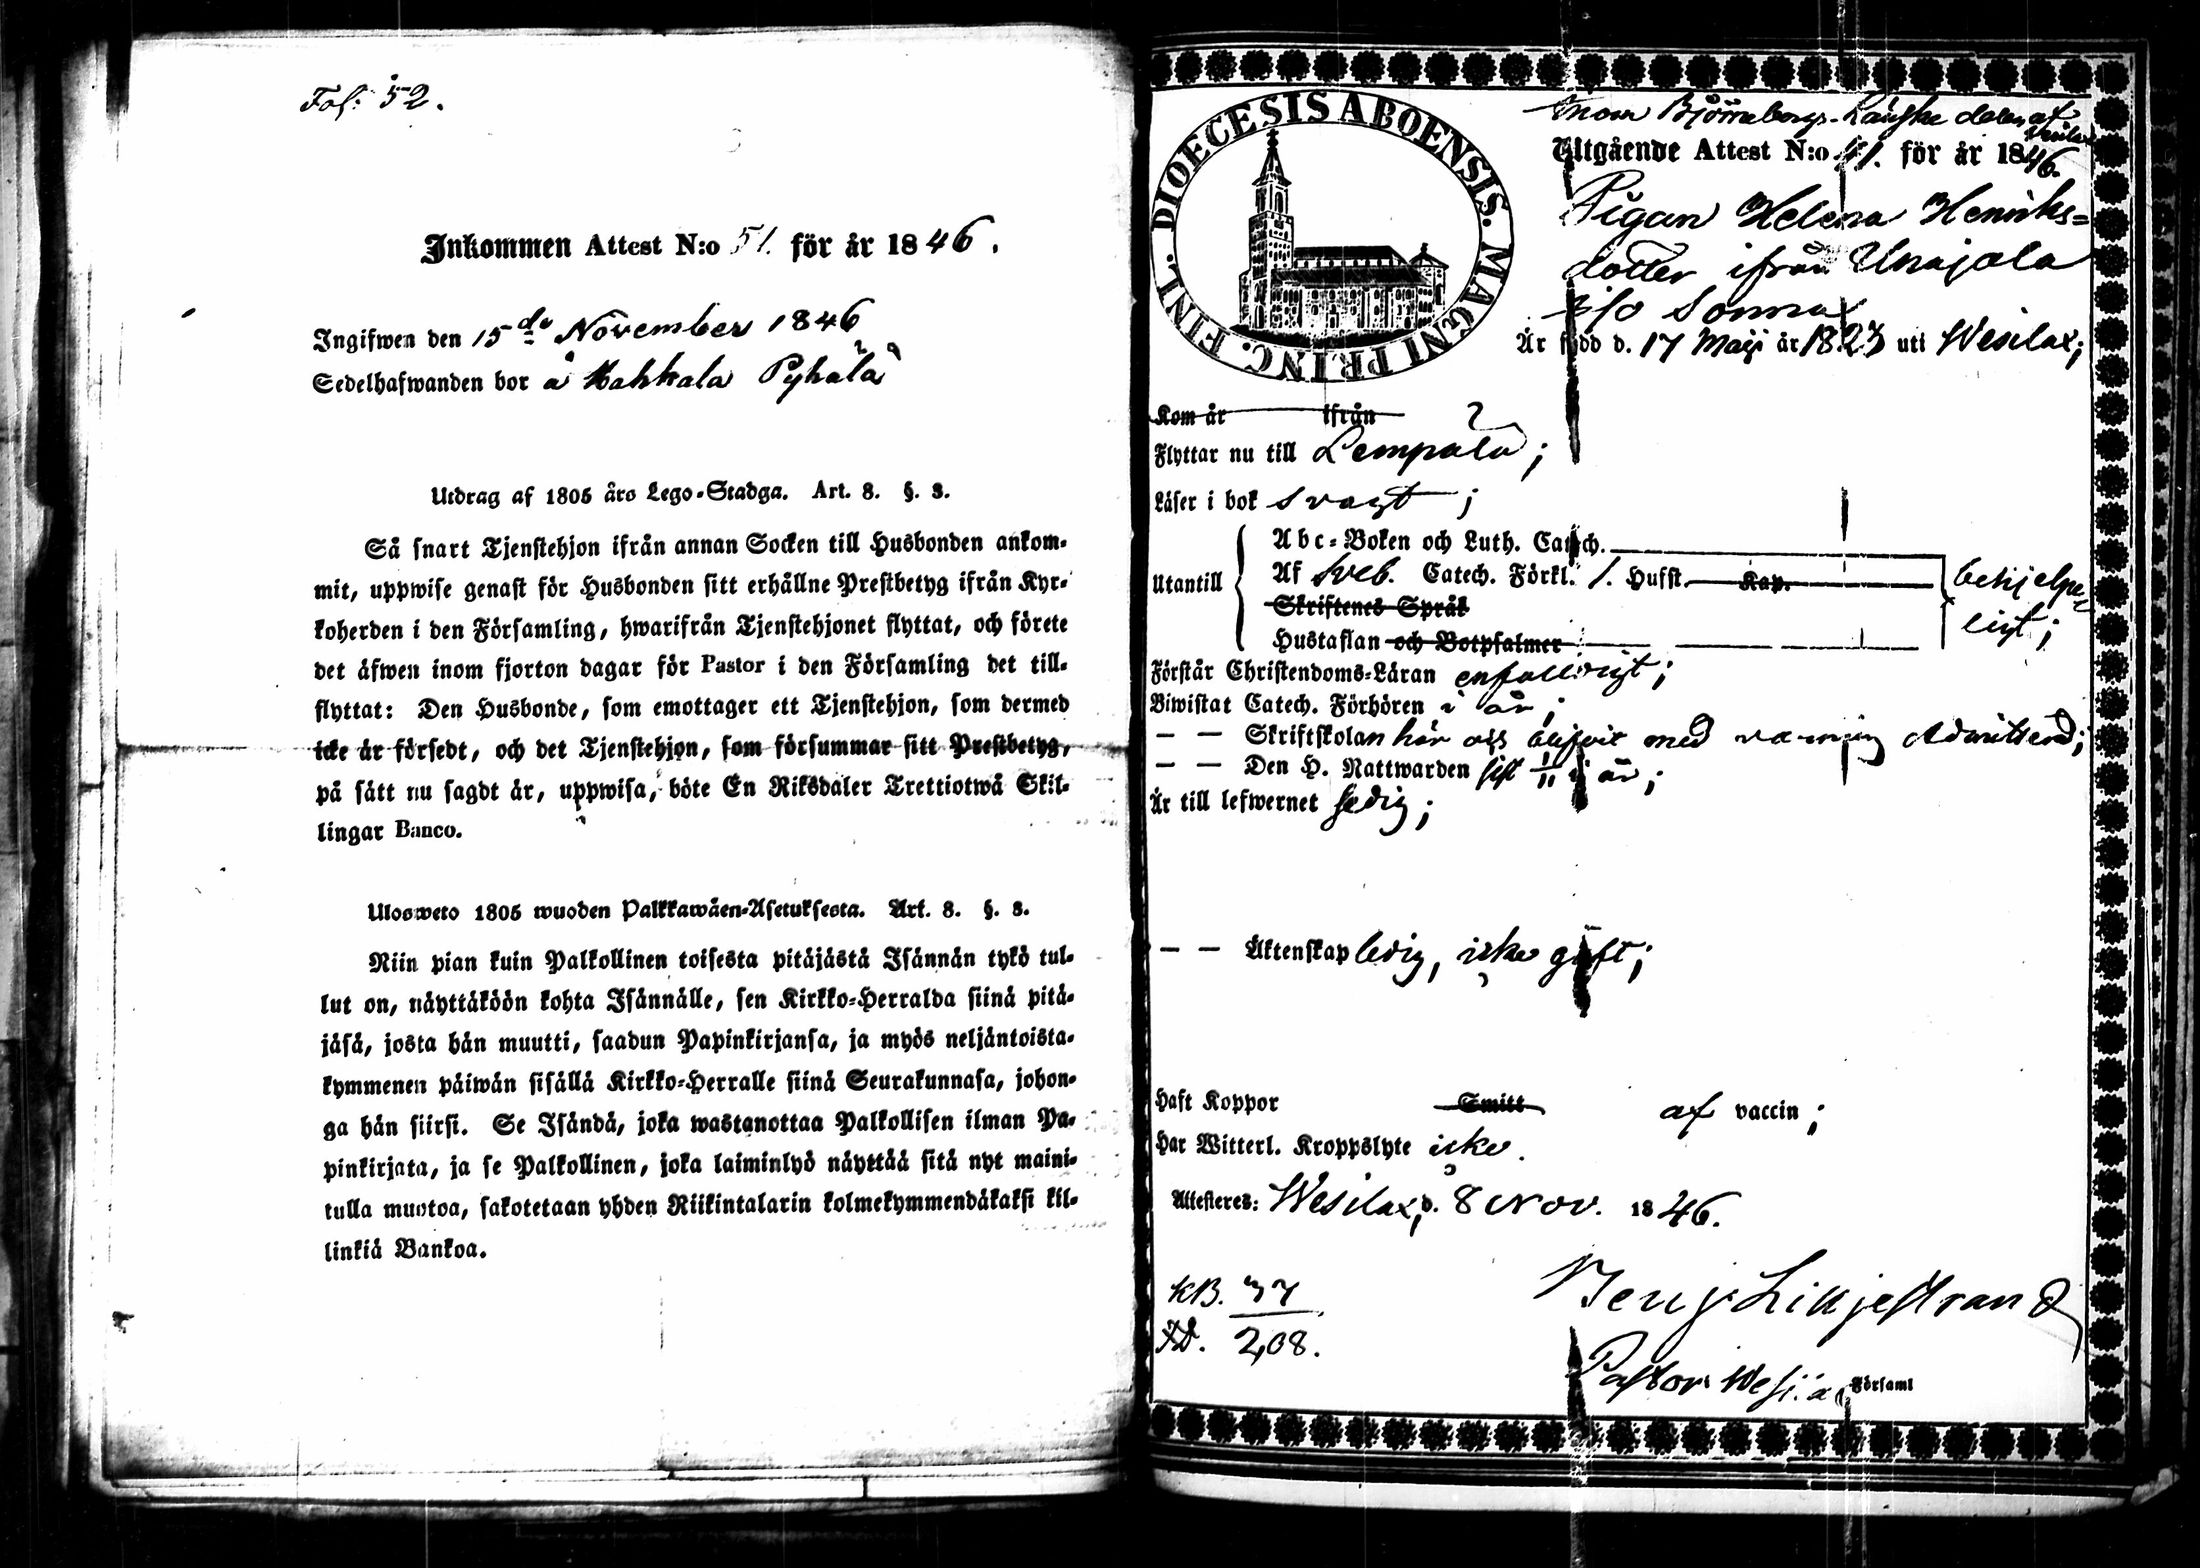 Fol: 52.
Inkommen Attest N:o 51. för år 1846.
Ingifwen den 15de November 1846
Sedelhafwanden bor å Hahkala Pyhälä
Utdrag af 1805 års Lego-Stadga. Art. 8. §. 3.
Så snart Tjenstehjon ifrån annan Socken till Husbonden ankom-
mit, uppwise genast för Husbonden sitt erhållne Prestbetyg ifrån Kyr-
koherden i den Församling, hwarifrån Tjenstehjonet flyttat, och förete
det äfwen inom fjorton dagar för Pastor i den Församling det till-
flyttat: Den Husbonde, som emottager ett Tjenstehjon, som dermed
icke är försedt, och det Tjenstehjon, som försummar sitt Prestbetyg,
på sätt nu sagdt är, uppwisa, böte En Riksdaler Trettiotwå Skil-
lingar Banco.
Ulosweto 1805 wuoden Palkkawäen-Asetuksesta. Art. 8. §. 3.
Niin pian kuin Palkollinen toisesta pitäjästä Isännän tykö tul-
lut on, näyttäköön kohta Isännälle, sen Kirkko-Herralda siinä pitä-
jäsä, josta hän muutti, saadun Papinkirjansa, ja myös neljäntoista-
kymmenen päiwän sisällä Kirkko-Herralle siinä Seurakunnasa, johon-
ga hän siirsi. Se Isändä, joka wastanottaa Palkollisen ilman Pa-
pinkirjata, ja se Palkollinen, joka laiminlyö näyttää sitä nyt maini-
tulla muotoa, sakotetaan yhden Riikintalarin kolmekymmendäkaksi kil-
linkiä Bankoa.
DIOECESIS ABOENSIS. MAGNI PRINC. FINL.
inom Björneborgs-Länska delen af
Wesilax
Utgående Attest N:o 41. för år 1846.
Pigan Helena Henriks-
dotter ifrån Unajala
i/o Sonna
Är född d. 17 Maji år 1823 uti Wesilax;
Kom år ifrån
Flyttar nu till Lempälä;
Läser i bok svagt;
Abc-Boken och Luth. Catech.
Utantill Af Sveb. Catech. Förkl. 1. Hufst. Kap. behjelpe-
Skriftenes Språk
Hustaflan och Botpsalmer ligt;
Förstår Christendoms-Läran enfalldigt;
Biwistat Catech. Förhören i år;
— — Skriftskolan här och blifvit med varning Admitterad;
— — Den H. Nattwarden sist 1/11 i år;
Är till lefwernet ledig;
— — Äktenskap ledig, icke gift;
Haft Koppor Smitt af vaccin;
Har Witterl. Kroppslyte icke.
Attesteres: Wesilax, d. 8 Nov. 1846.
KB. 77
208.
Benj. Liljestrand
Pastor i Församl